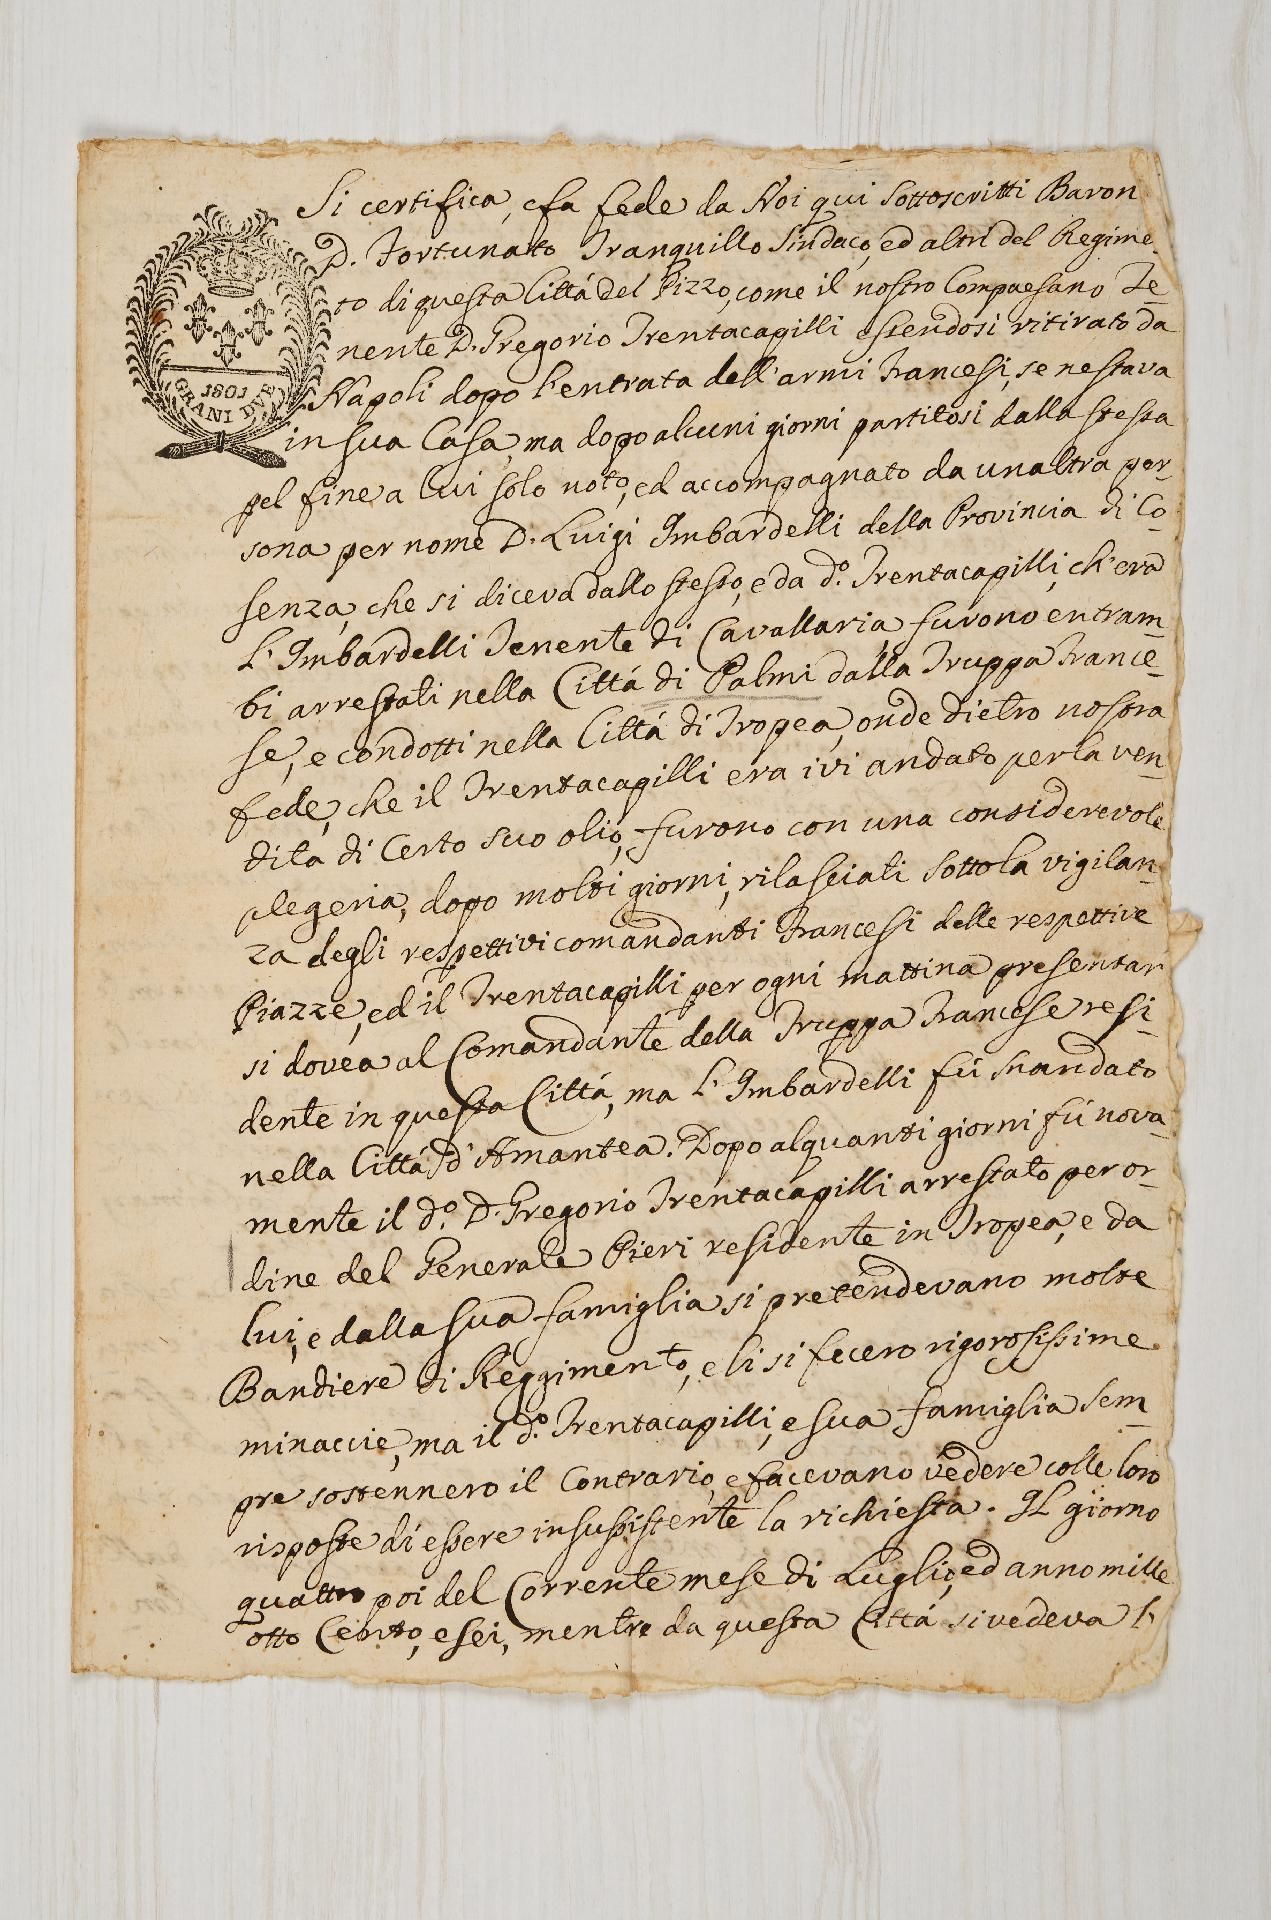 Si certifica, e fa fede da Noi qui sottoscritti Baron
D. Fortunato Tranquillo Sindaco, ed altri del Regime
to di questa Cittá del Pizzo, come il nostro Compaesano Te-
nente D. Gregorio Trentacapilli essendosi ritirato da
Napoli dopo l'entrata dell'armi Francesi, se ne stava
in sua Casa, ma dopo alcuni giorni partitosi dalla stessa
pel fine a lui solo noto, ed accompagnato da un altra per-
sona per nome D. Luigi Imbardelli della Provincia di Co-
senza, che si diceva dallo stesso, e da d.º Trentacapilli, ch'era
l'Imbardelli Tenente di Cavallaria furono entram-
bi arrestati nella Cittá di Palmi dalla Truppa France-
se, e condotti nella Cittá di Tropea, onde dietro nostra
fede, che il Trentacapilli era ivi andato per la ven-
dita di Certo suo olio, furono con una considerevole
plegeria, dopo molti giorni, rilasciati sotto la vigilan-
za degli respettivi comandanti Francesi delle respettive
Piazze, ed il Trentacapilli per ogni mattina presentar
si dovea al Comandante della Truppa Francese resi-
dente in questa Cittá, ma l'Imbardelli fú mandato
nella Cittá d'Amantea. Dopo alquanti giorni fú nova-
mente il d.º D. Gregorio Trentacapilli arrestato per or-
dine del Generale Pieri residente in Tropea, e da
lui, e dalla sua famiglia si pretendevano molte
Bandiere di Reggimento, e li si fecero rigorosissime
minaccie, ma il d.º Trentacapilli, e sua famiglia sem-
pre sostennero il Contrario, e facevano vedere colle loro
risposte di essere insussistente la richiesta. Il giorno
quattro poi del Corrente mese di Luglio, ed anno mille
otto Cento, e sei, mentre da questa Cittá si vedeva l'
1801
GRANI DVE